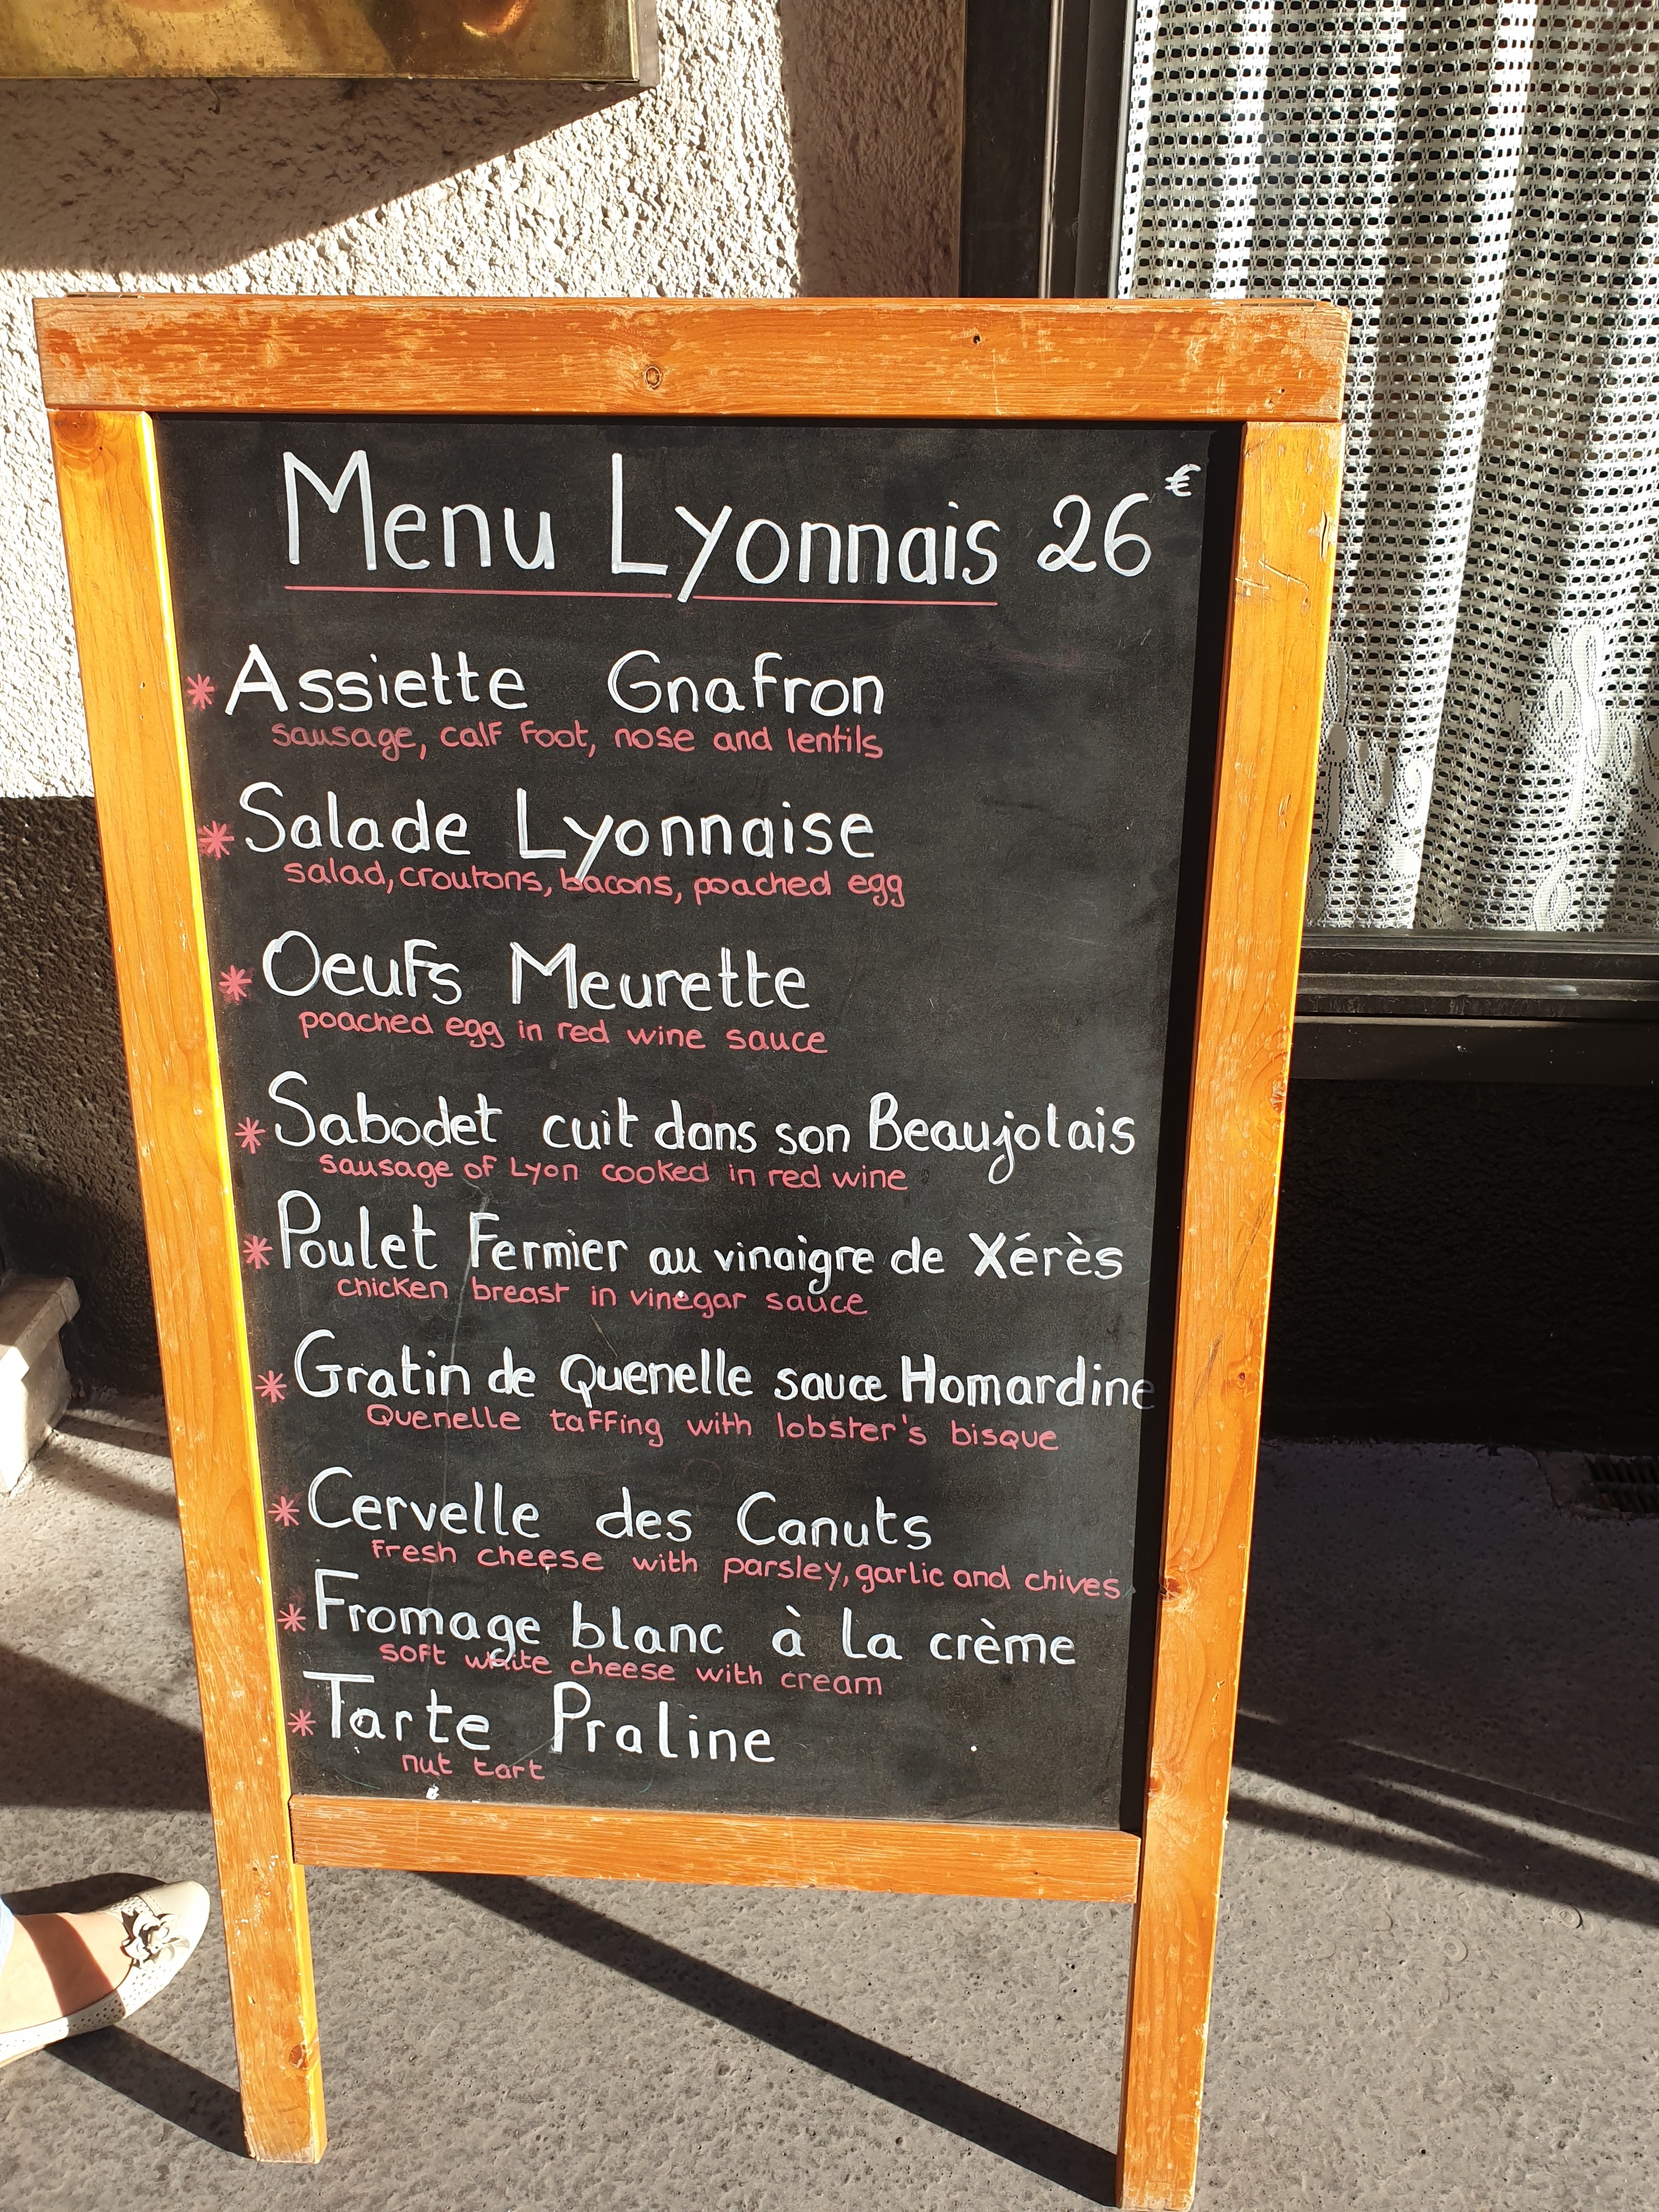 Menu Lyonnais 26€
* Assiette Gnafron
sausage, calf foot, nose and lentils
* Salade Lyonnaise
salad, croutons, bacons, poached egg
* Oeufs Meurette
poached egg in red wine sauce
* Sabodet cuit dans son Beaujolais
sausage of Lyon cooked in red wine
* Poulet Fermier au vinaigre de Xérès
chicken breast in vinegar sauce
* Gratin de Quenelle sauce Homardine
Quenelle taffing with lobster's bisque
* Cervelle des Canuts
fresh cheese with parsley, garlic and chives
* Fromage blanc à la crème
soft white cheese with cream
* Tarte Praline
nut tart